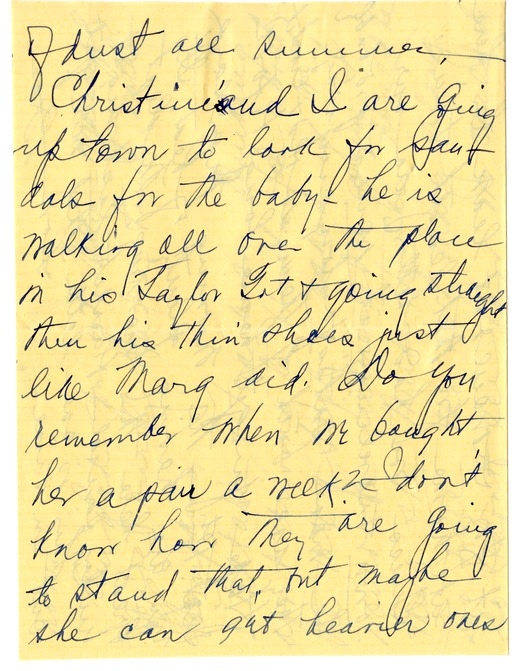 of dust all summer.
Christine and I are going
up town to look for san-
dals for the baby - he is
walking all over the place
in his Taylor Tot + going straight
thru his thin shoes just
like Marg did. Do you
remember when we bought
her a pair a week? I don't
know how they are going
to stand that, but maybe
she can get heavier ones